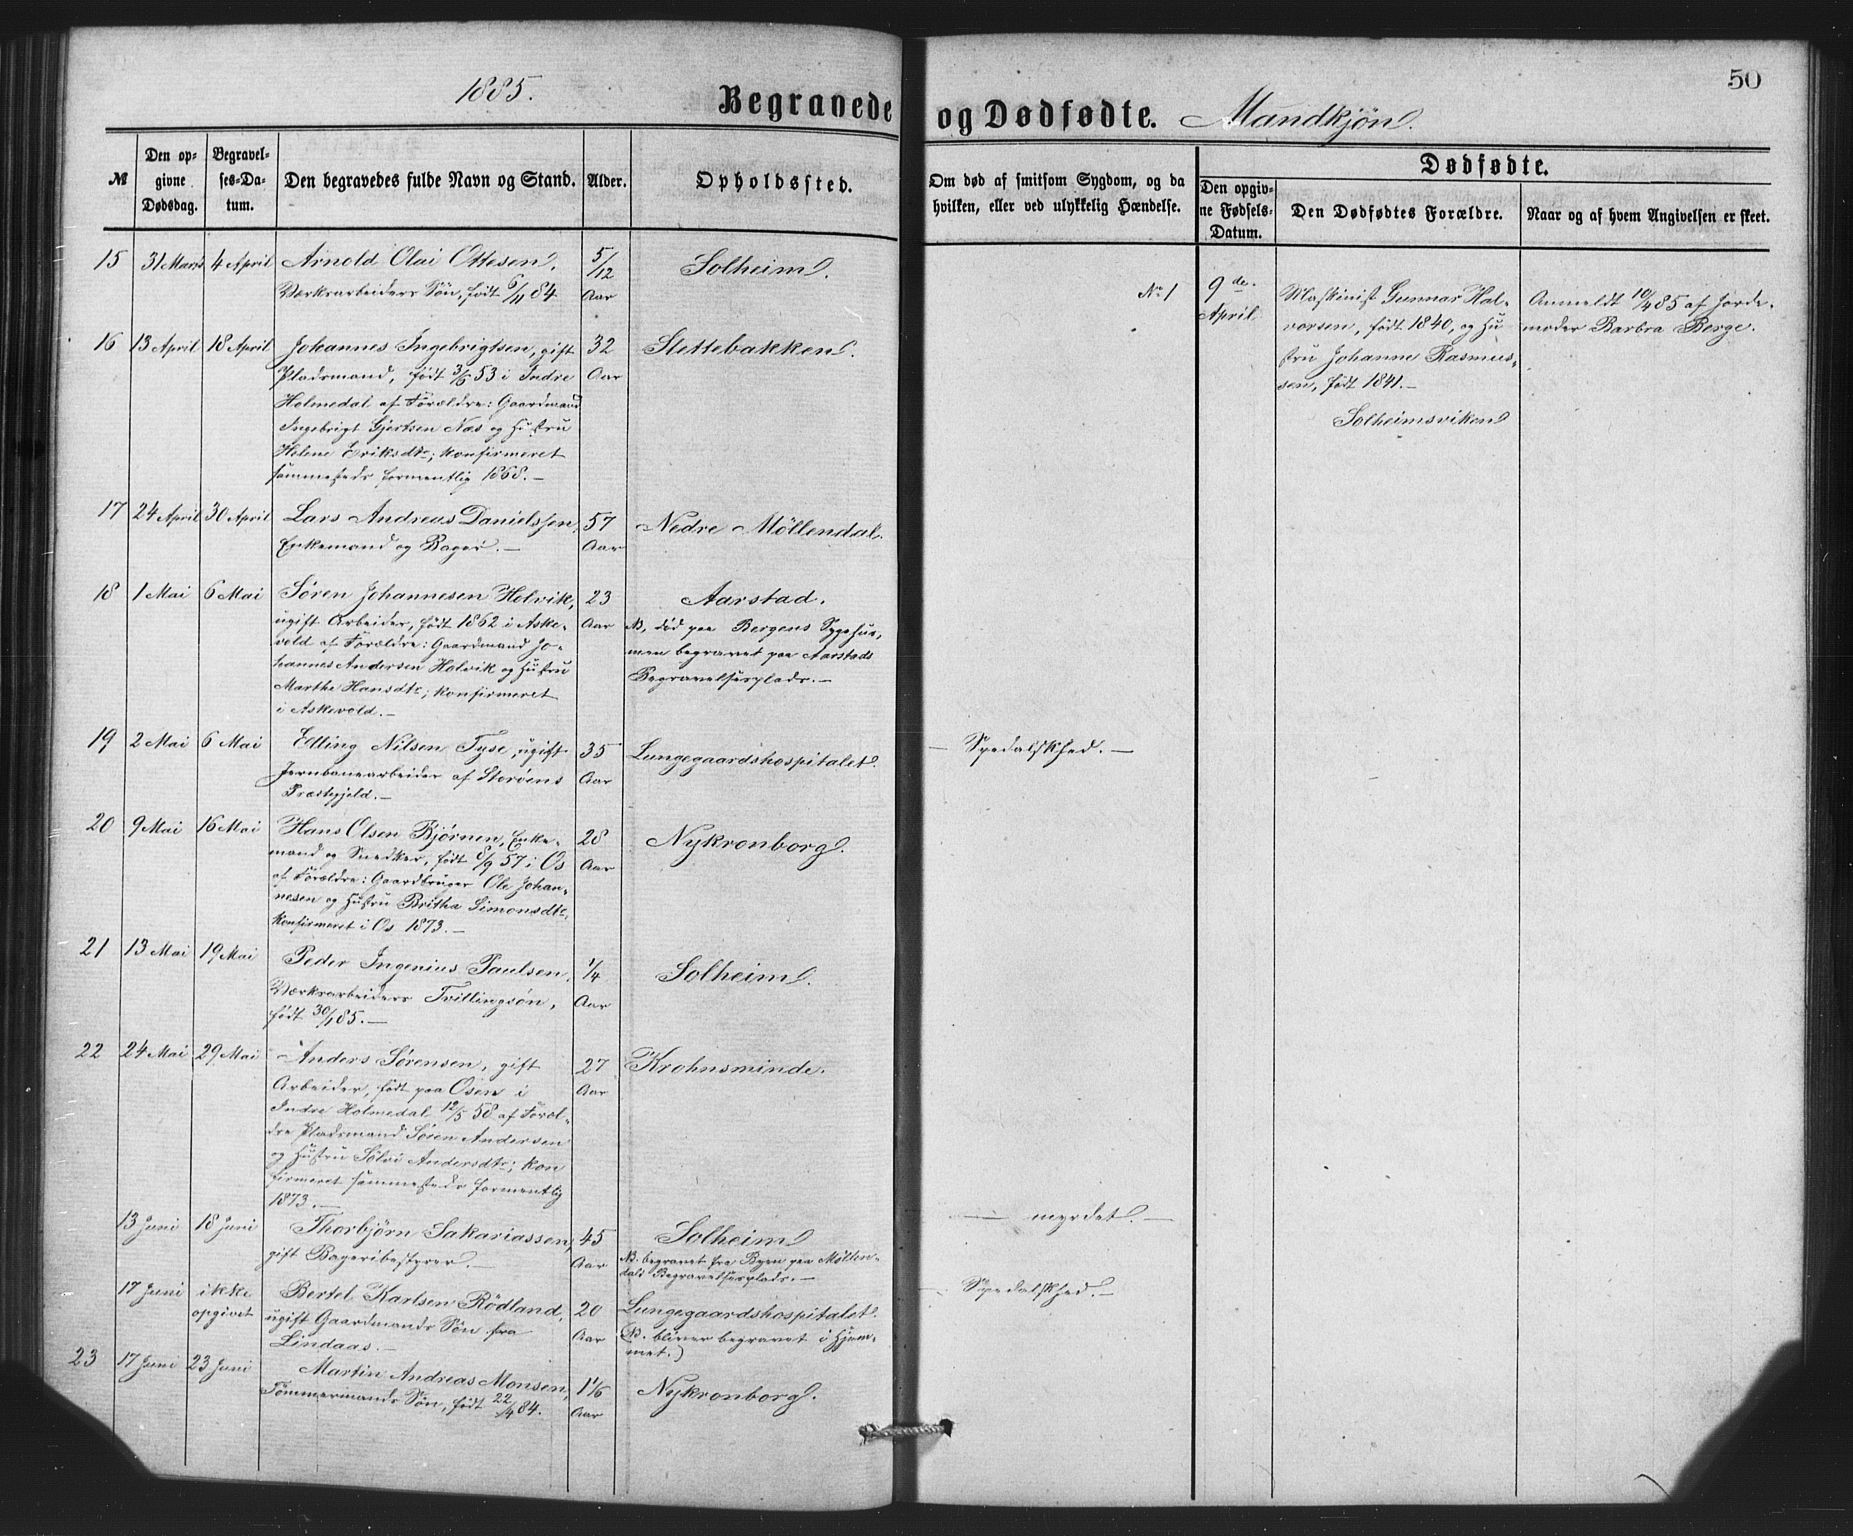 1885.
Begravede og Dødfødte. Mandkjøn.
50
№
Den opgivne Dødsdag.
Begravelses-Datum.
Den begravedes fulde Navn og Stand.
Alder.
Opholdssted.
Om død af smitsom Sygdom, og da hvilken, eller ved ulykkelig Hændelse.
Dødfødte.
Den opgivne Fødsels-Datum.
Den Dødfødtes Forældre.
Naar og af hvem Angivelsen er skeet.
15 31 Marts 4 April Arnold Olai Ottesen, 5/12 Aar Solheim.
Værksarbeiders Søn, født 6/11 84.
16 13 April 18 April Johannes Ingebrigtsen, gift 32 Aar Slettebakken.
Pladsmand, født 3/6 53 i Indre
Holmedal af Forældre: Gaardmand
Ingebrigt Gjertsen Næs og Hustru
Helene Eriksdtr; konfirmeret
sammesteds formentlig 1868. —
17 24 April 30 April Lars Andreas Danielssen, 57 Aar Nedre Møllendal.
Enkemand og Bager. —
18 1 Mai 6 Mai Søren Johannesen Holvik, 23 Aar Aarstad.
ugift Arbeider, født 1862 i Aske-
vold af Forældre: Gaardmand Jo-
hannes Andersen Holvik og Hustru
Marthe Hansdtr; konfirmeret
i Askevold. —
NB. død paa Bergens Sygehus,
men begravet paa Aarstads
Begravelsesplads. —
19 2 Mai 6 Mai Elling Nilsen Tyse, ugift 35 Aar Lungegaardshospitalet. — Spedalskhed. —
Jernbanearbeider af Storøens
Præstegjeld. —
20 9 Mai 16 Mai Hans Olsen Bjørnen, Enke- 28 Aar Nykronborg.
mand og Snedker, født 8/9 57 i Os
af Forældre: Gaardbruger Ole Johan-
nesen og Hustru Britha Simonsdtr,
konfirmeret i Os 1873. —
21 13 Mai 19 Mai Peder Ingenius Paulsen, 1/4 Aar Solheim.
Værksarbeiders Tvillingsøn,
født 30/1 85. —
22 24 Mai 29 Mai Anders Sørensen, gift 27 Aar Krohnsminde.
Arbeider, født paa Osen i
Indre Holmedal 12/5 58 af Foræl-
dre Pladsmand Søren Andersen
og Hustru Sølvi Andersdtr; kon
firmeret sammesteds formentlig
1873. —
13 Juni 18 Juni Thorbjørn Sakariassen, 45 Aar Solheim — myrdet. —
gift Bageribestyrer. —
NB. begravet fra Byen paa Møllen-
dals Begravelsesplads. —
17 Juni ikke opgivet Bertel Karlsen Rødland, 20 Aar Lungegaardshospitalet. — Spedalskhed. —
ugift Gaardmands Søn fra
Lindaas. —
(NB. bliver begravet i Hjem-
met.)
23 17 Juni 23 Juni Martin Andreas Monsen, 1 1/6 Aar Nykronborg.
Tømmermands Søn, født 22/4 84.
№ 1 9de April
Maskinist Gunnar Hal-
vorsen, født 1840, og Hu
stru Johanne Rasmus-
sen, født 1841. —
Solheimsviken
Anmeldt 10/4 85 af Jorde-
moder Barbra Berge.